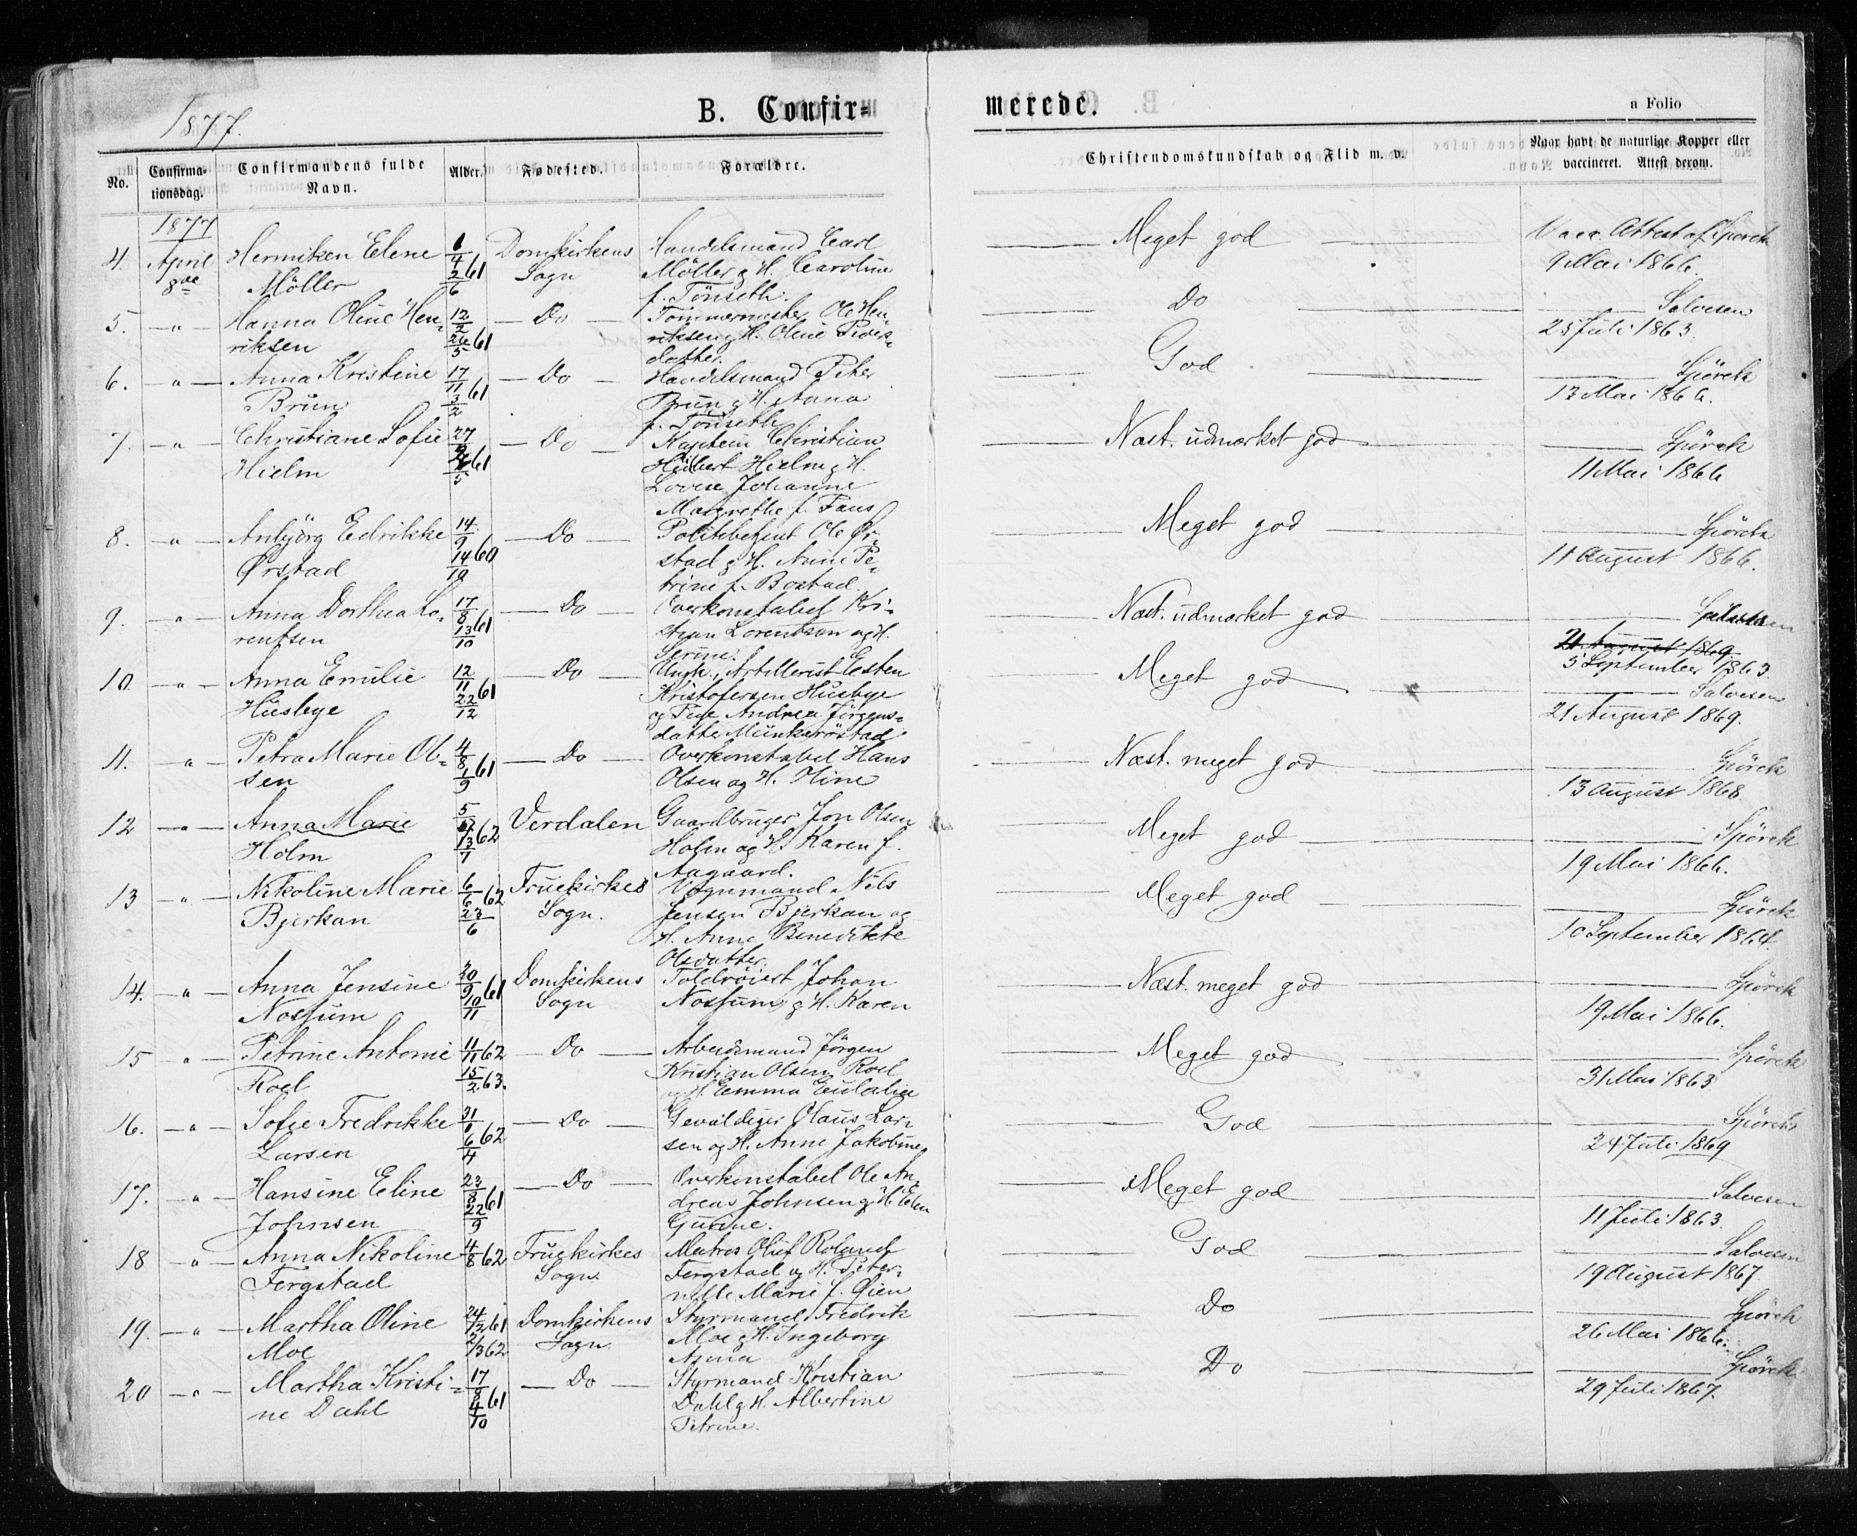 1877.
B. Confir-
merede.
a Folio
No.
Confirma-
tionsdag.
Confirmandens fulde
Navn.
Alder.
Fødested.
Forældre.
Christendomskundskab og Flid m. v.
Naar havt de naturlige Kopper eller
vaccineret. Attest derom.
1877
4. April 8de Hermiken Elene 6/4 61 Domkirkens Handelsmand Carl Meget god Vacc. Attest af Spörck
Möller 2/6 Sogn Möller g H. Caroline 9 Mai 1866.
f. Tönseth.
5. — " — Hanna Oline Hen- 12/2 — Do — Tømmermester Ole Hen- Do Salvesen
riksen 26/5 61 riksen g H. Oline 25 Juli 1863.
datter.
6. — " — Anna Kristine 17/11 61 — Do — Handelsmand Peter God Spörck
Brun 3/2 Brun g H. Anna 13 Mai 1866.
f. Tönseth
7. — " — Christiane Sofie 27 — Do — Kaptein Christian Næst. udmærket god Spörck
Hielm 61 /5 Hielm g H. 11 Mai 1866
Lovise Johanne
Margrethe f. Faus
8. — " — Anbjörg Edrikke 14/9 — Do — Politibetjent Ole Ør- Meget god Spörck
Ørstad 14/10 60 stad g H. Anne Pe- 11 August 1866.
trine f. Bostad.
9. — " — Anna Dorthea Lo- 17/8 61 — Do — Overkonstabel Kri- Næst. udmærket god
rentsen 13/10 stian Lorentsen og H. 21 August 1869
Serine. 5 September 1863.
10. — " — Anna Emilie 12/11 — Do — Ungk., Artillerist Esten Meget god Salvesen
Husbye 22/12 61 Kristofersen Husbye 21 August 1869.
og Pige Andrea Jörgens-
datter Munkeröstad
11. — " — Petra Marie Ol- 4/8 61 — Do — Overkonstabel Hans Næst. meget god Spörck
sen 1/9 Olsen og H. Oline 13 August 1868.
12 — " — Anna Marie 5 62 Verdalen Gaardbruger Jon Olsen Meget god Spörck
Holm 13/7 Holm og H. Karen f. 19 Mai 1866.
Aagaard.
13 — " — Nikoline Marie 6/6 62 Fruekirkes Vognmand Nils Meget god Spörck
Bjerkan 23/6 Sogn. Jensen Bjerkan og 10 September 1864.
H. Anne Benedikte
Olsdatter.
14. — " — Anna Jensine 20/9 61 Domkirkens Toldröiert Johan Næst. meget god Spörck
Nossum 10/11 Sogn Nossum g H. Karen 19 Mai 1866.
15 — " — Petrine Antonie 11/11 62 — Do — Arbeidsmand Jörgen Meget god Spörck
Roel 15/2 63. Kristian Olsen Roel 31 Mai 1863
og H. Emma Eulalia
16. — " — Sofie Fredrikke 31/1 62 — Do — Gevaldiger Olaus Lar- God Spörck
Larsen 6/4 sen og H. Anne Jakobine 24 Juli 1869
17. — " — Hansine Eline 23/8 61 — Do — Overkonstabel Ole An- Meget god Salvesen
Johnsen 22/9 dreas Johnsen g H. Elen 11 Juli 1863.
Gurine.
18 — " — Anna Nikoline 4/8 62 Fruekirkes Matros Oluf Roland God Salvesen
Fergstad Sogn. Fergstad og H. Peter- 19 August 1867.
nelle Marie f. Øien
19. — " — Martha Oline 24/12 61 Domkirkens Styrmand Fredrik Do Spörck
Moe 2/3 62 Sogn Moe g H. Ingeborg 26 Mai 1866.
Asma
20 — " — Martha Kristi- 17/8 61 — Do — Styrmand Kristian Do Spörck
ne Dahl 4/10 Dahl g H. Albertine 29 Juli 1867.
Petrine.